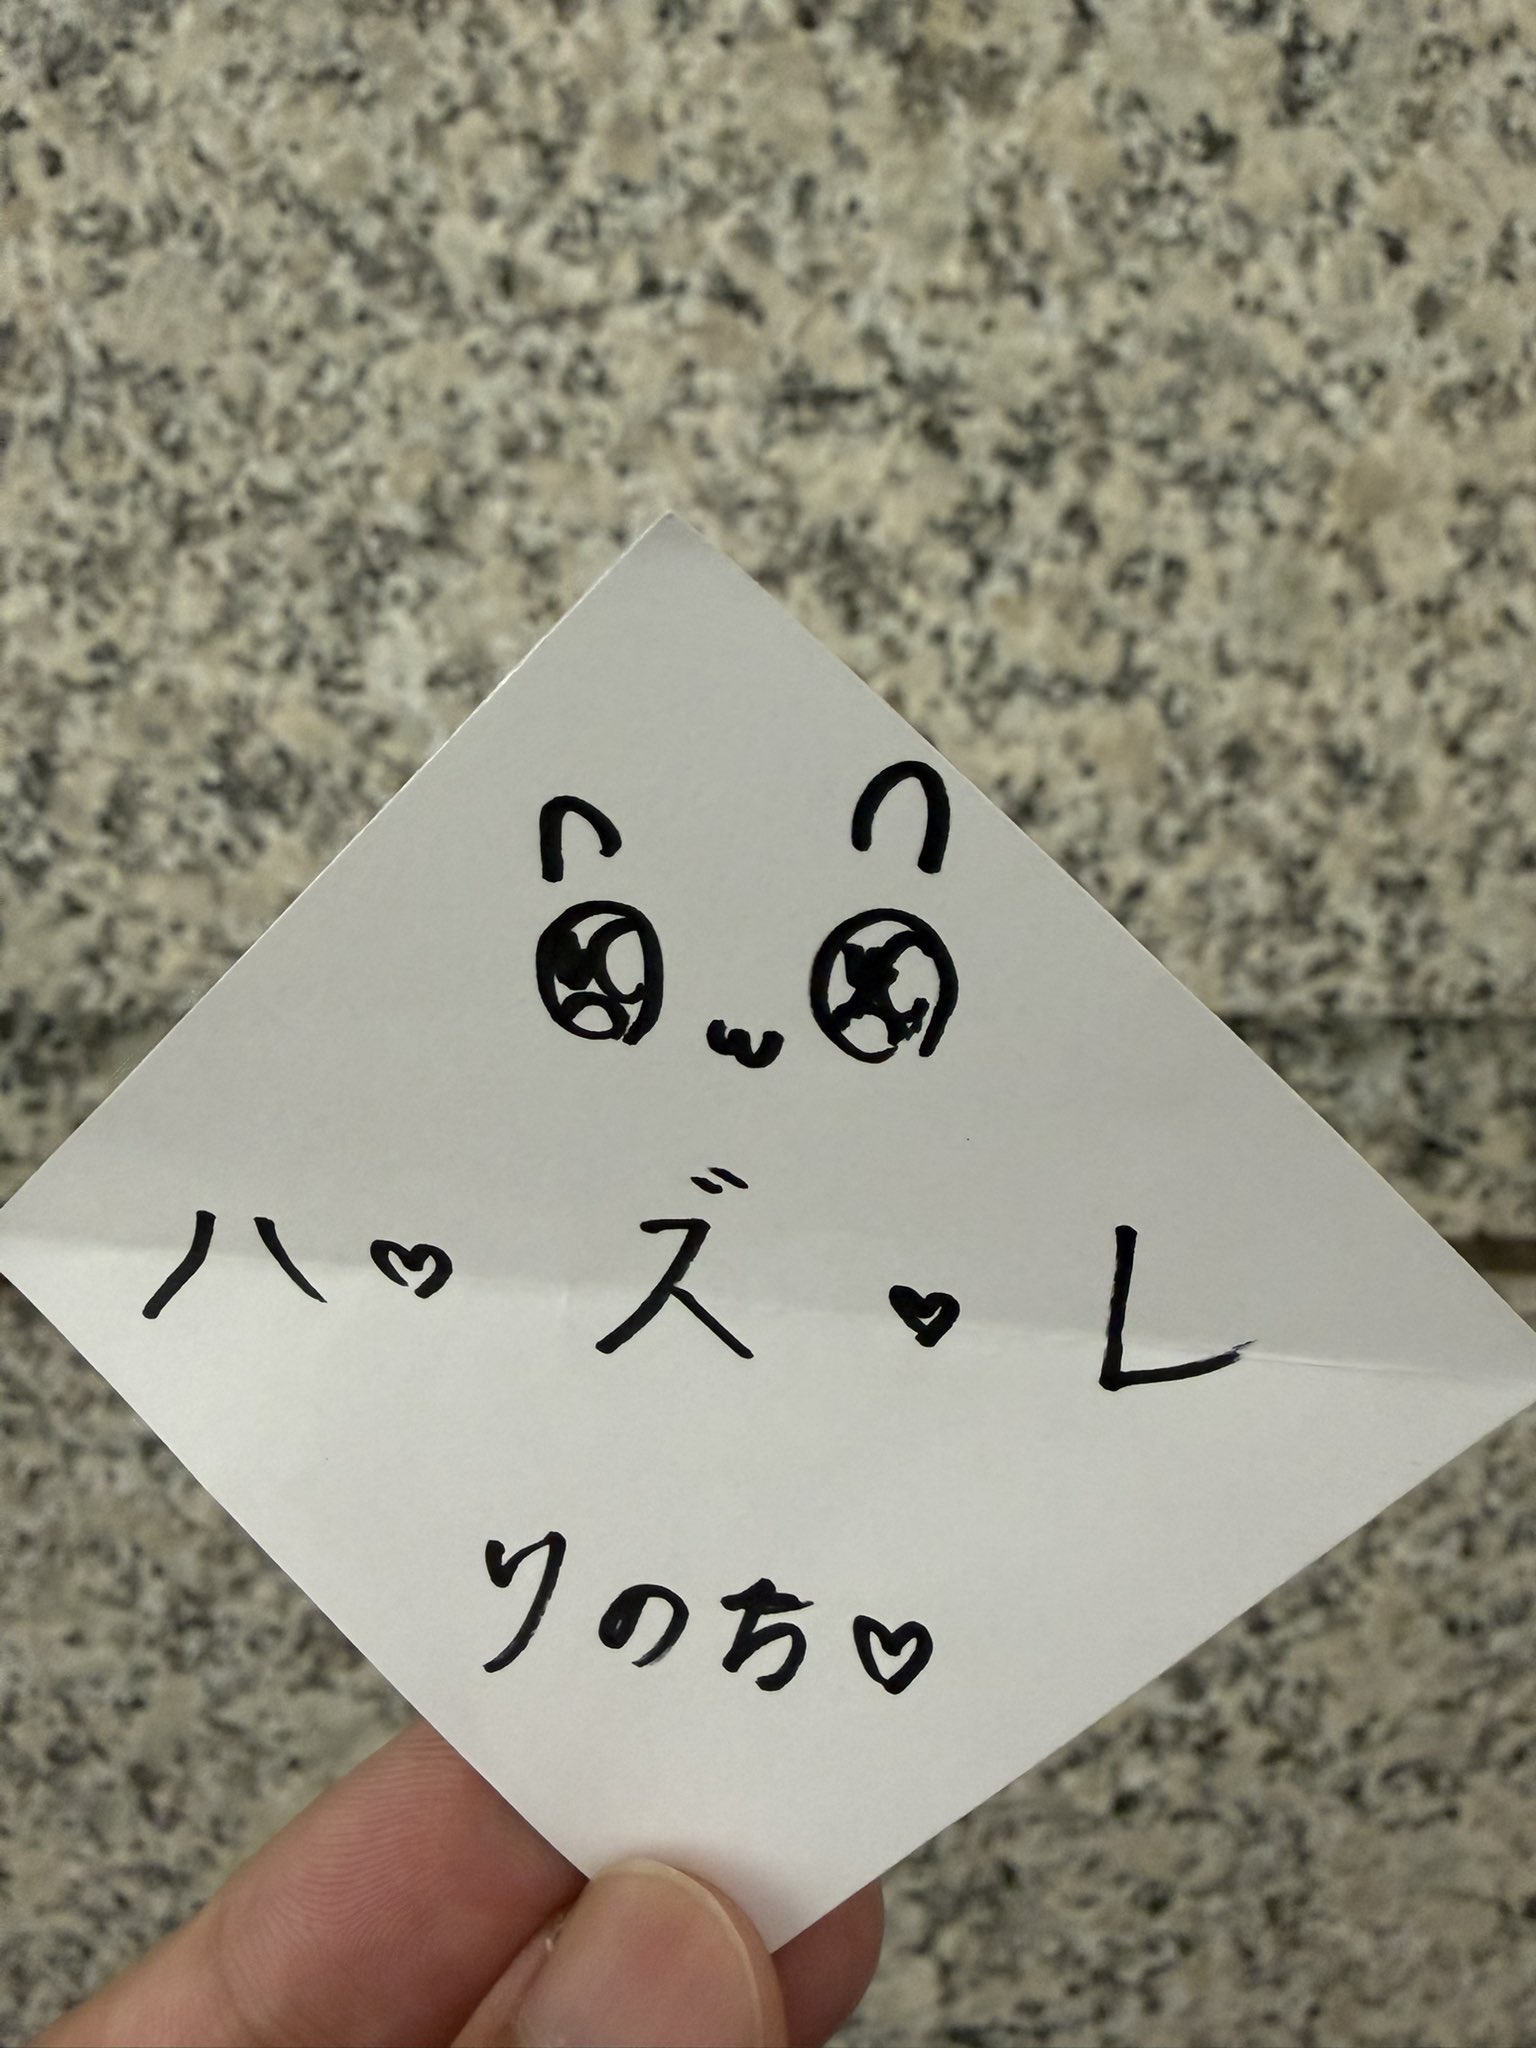 ハ♡ズ♡レ
りのち♡